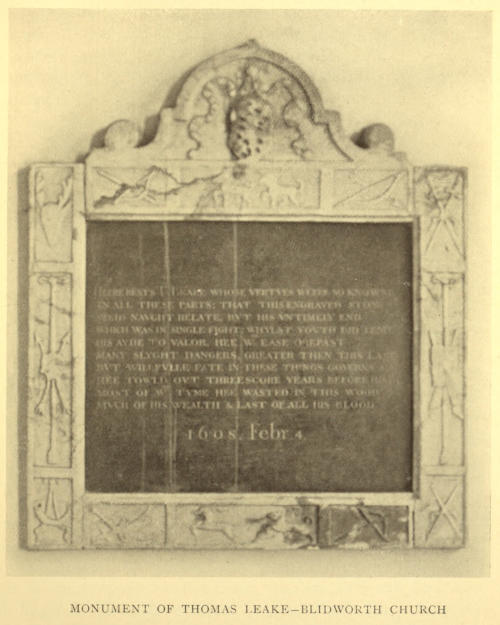 HEERE RESTS T. LEAKE WHOSE VERTVES WEERE SO KNOWNE
IN ALL THESE PARTS; THAT THIS ENGRAVED STONE
NEED NAVGHT RELATE, BVT HIS VNTIMELY END
WHICH WAS IN SINGLE FIGHT; WHYLST YOVTH DID LEND
HIS AYDE TO VALOR, HEE W. EASE OREPAST
MANY SLYGHT DANGERS, GREATER THEN THIS LAST
BVT WILLFVLLE FATE IN THESE THINGS GOVERNS
HEE TOWLD OVT THREESCORE YEARS BEFORE HIS
MOST OF W. TYME HEE WASTED IN THIS WOOD
MVCH OF HIS WEALTH & LAST OF ALL HIS BLOOD
1608. Febr 4.
MONUMENT OF THOMAS LEAKE—BLIDWORTH CHURCH